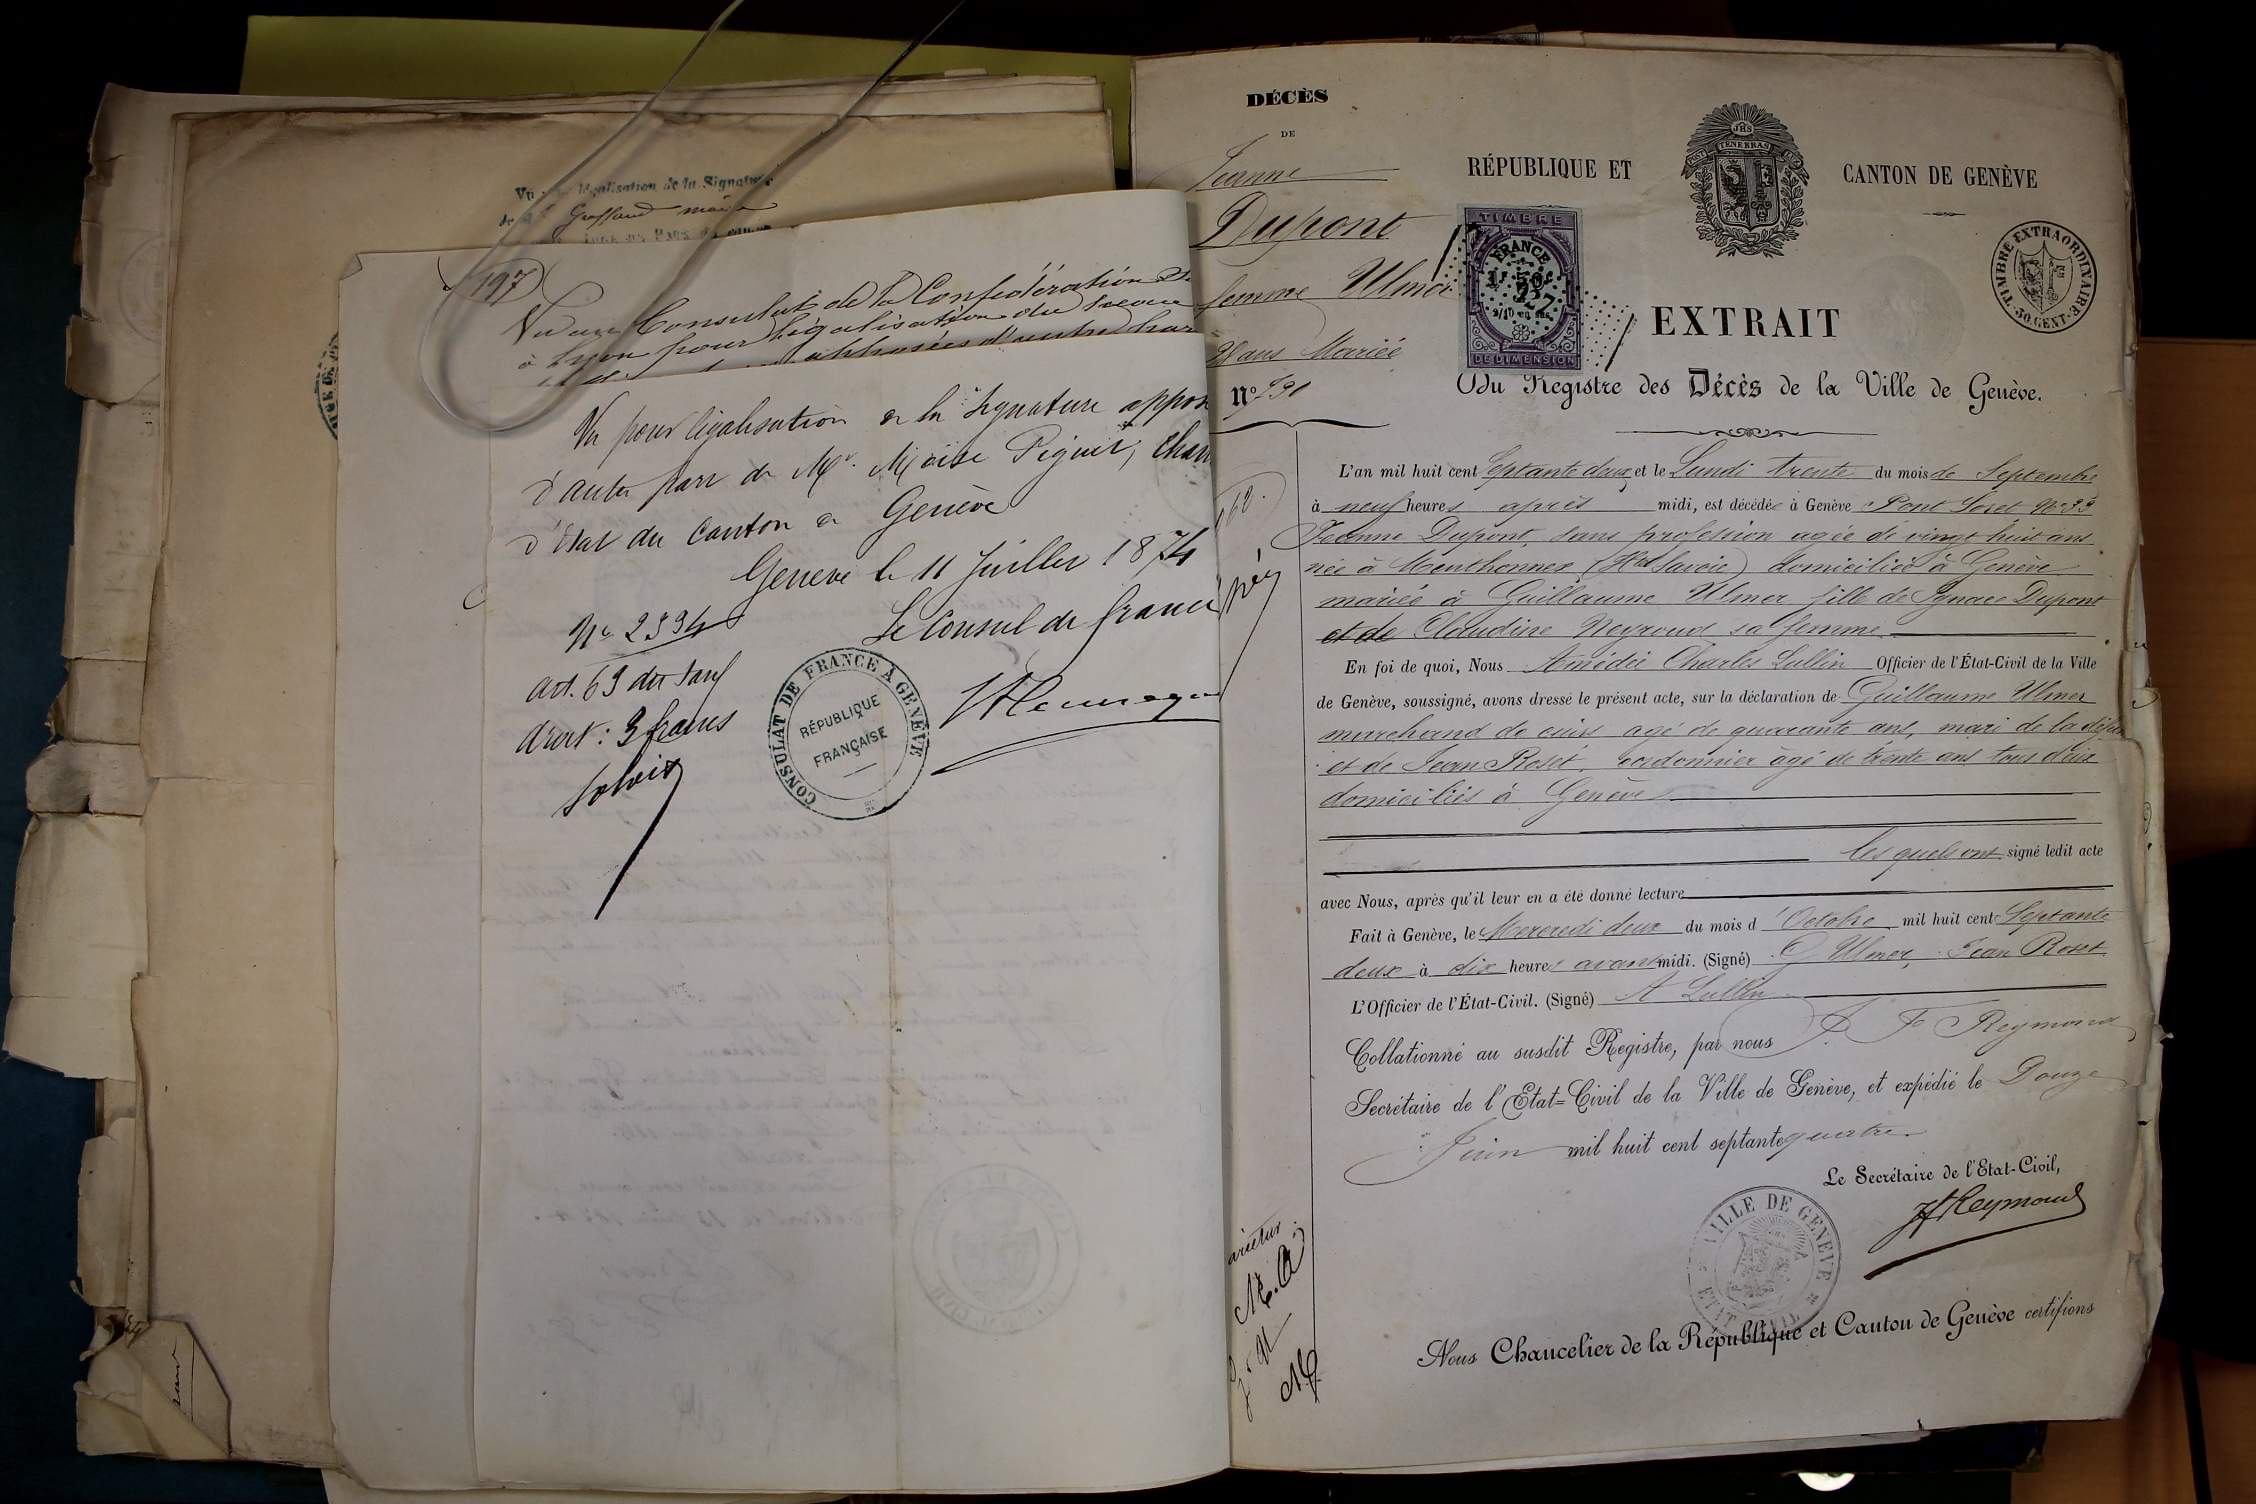 Vu pour légalisation de la Signature
de Mr Graffand maire
197
Vu au Consulat de la Confédération
à Lyon pour légalisation du sceau
apposées d'autre part
Vu pour légalisation de la signature appos
d'autre part de Mr. Moïse Piguet, Chan
d'État du Canton de Genève
Genève le 11 Juillet 1874
Le Consul de France
No 2394
art. 63 du tarif
droit : 3 francs
CONSULAT DE FRANCE A GENÈVE
RÉPUBLIQUE
FRANÇAISE
DÉCÈS
DE
Jeanne
Dupont
femme Ulmer
ans Mariée
No
RÉPUBLIQUE ET
CANTON DE GENÈVE
JHS
POST TENEBRAS LUX
TIMBRE
FRANCE
50c
2/10 en sus
DE DIMENSION
TIMBRE EXTRAORDINAIRE
50. CENT.
EXTRAIT
Du Registre des Décès de la Ville de Genève.
L'an mil huit cent Septante deux et le Lundi trente du mois de Septembre
à neuf heures après midi, est décédée à Genève Pont Soret No 33
Jeanne Dupont, sans profession agée de vingt huit ans
née à Menthonnex (Hte Savoie) domiciliée à Genève
mariée à Guillaume Ulmer fille de Ignace Dupont
et de Claudine Neyroud sa femme
En foi de quoi, Nous Amédée Charles Lullin Officier de l'État-Civil de la Ville
de Genève, soussigné, avons dressé le présent acte, sur la déclaration de Guillaume Ulmer
marchand de cuirs agé de quarante ans, mari de la défun
et de Jean Roset, cordonnier âgé de trente ans tous deux
domiciliés à Genève
les quels ont signé ledit acte
avec Nous, après qu'il leur en a été donné lecture
Fait à Genève, le Mercredi deux du mois d'Octobre mil huit cent Septante
deux à dix heures avant midi. (Signé) G Ulmer, Jean Roset
L'Officier de l'État-Civil. (Signé) A Lullin
Collationné au susdit Registre, par nous J. F Reymond
Secrétaire de l'Etat-Civil de la Ville de Genève, et expédié le Douze
Juin mil huit cent septante quatre
Le Secrétaire de l'Etat-Civil,
JF Reymond
VILLE DE GENÈVE
ETAT CIVIL
Nous Chancelier de la République et Canton de Genève certifions